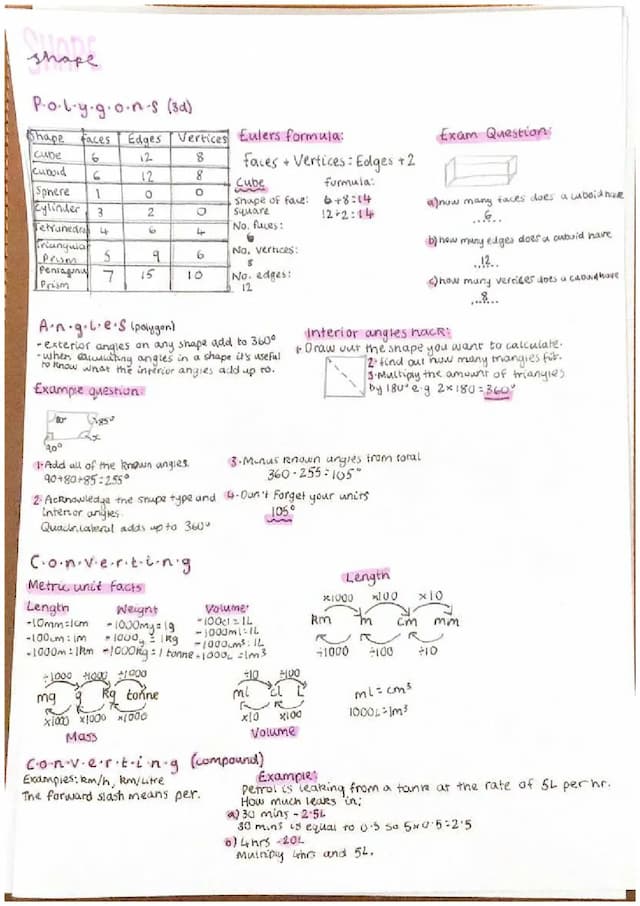 SHAPE
shape
P·o·l·y·g·o·n·s (3d)
Shape faces Edges Vertices
cube 6 12 8
cuboid 6 12 8
Sphere 1 0 0
cylinder 3 2 0
Tetrahedra 4 6 4
Triangular Prism 5 9 6
Pentagonal Prism 7 15 10
Eulers formula:
Faces + Vertices = Edges + 2
Cube
Shape of face:
square
No. faces:
6
No. vertices:
8
No. edges:
12
formula:
6+8=14
12+2=14
Exam Question:
a) how many faces does a cuboid have
...6...
b) how many edges does a cuboid have
...12...
c) how many vertices does a cuboid have
...8...
A·n·g·l·e·s (polygon)
- exterior angles on any shape add to 360°
- when calculating angles in a shape it's useful
to know what the interior angles add up to.
Interior angles hack:
1· Draw out the shape you want to calculate.
2· find out how many triangles fit.
3· Multiply the amount of triangles
by 180° e.g 2×180=360°
Example question:
80°
85°
x
90°
1· Add all of the known angles.
90+80+85=255°
2· Acknowledge the shape type and
interior angles.
Quadrilateral adds up to 360°
3· Minus known angles from total
360-255=105°
4· Don't forget your units
105°
C·o·n·v·e·r·t·i·n·g
Metric unit facts
Length
-10mm=1cm
-100cm=1m
-1000m=1km
Weight
-1000mg=1g
-1000g=1kg
-1000kg=1 tonne
Volume
-100cl=1L
-1000ml=1L
-1000cm³=1L
-1000L=1m³
Length
×1000 ×100 ×10
km m cm mm
÷1000 ÷100 ÷10
÷1000 ÷1000 ÷1000
mg g kg tonne
×1000 ×1000 ×1000
Mass
÷10 ÷100
ml cl L
×10 ×100
Volume
ml=cm³
1000L=1m³
C·o·n·v·e·r·t·i·n·g (compound)
Examples: km/h, km/litre
The forward slash means per.
Example:
Petrol is leaking from a tank at the rate of 5L per hr.
How much leaks in;
a) 30 mins - 2.5L
30 mins is equal to 0.5 so 5×0.5=2.5
b) 4hrs -20L
Multiply 4hrs and 5L.